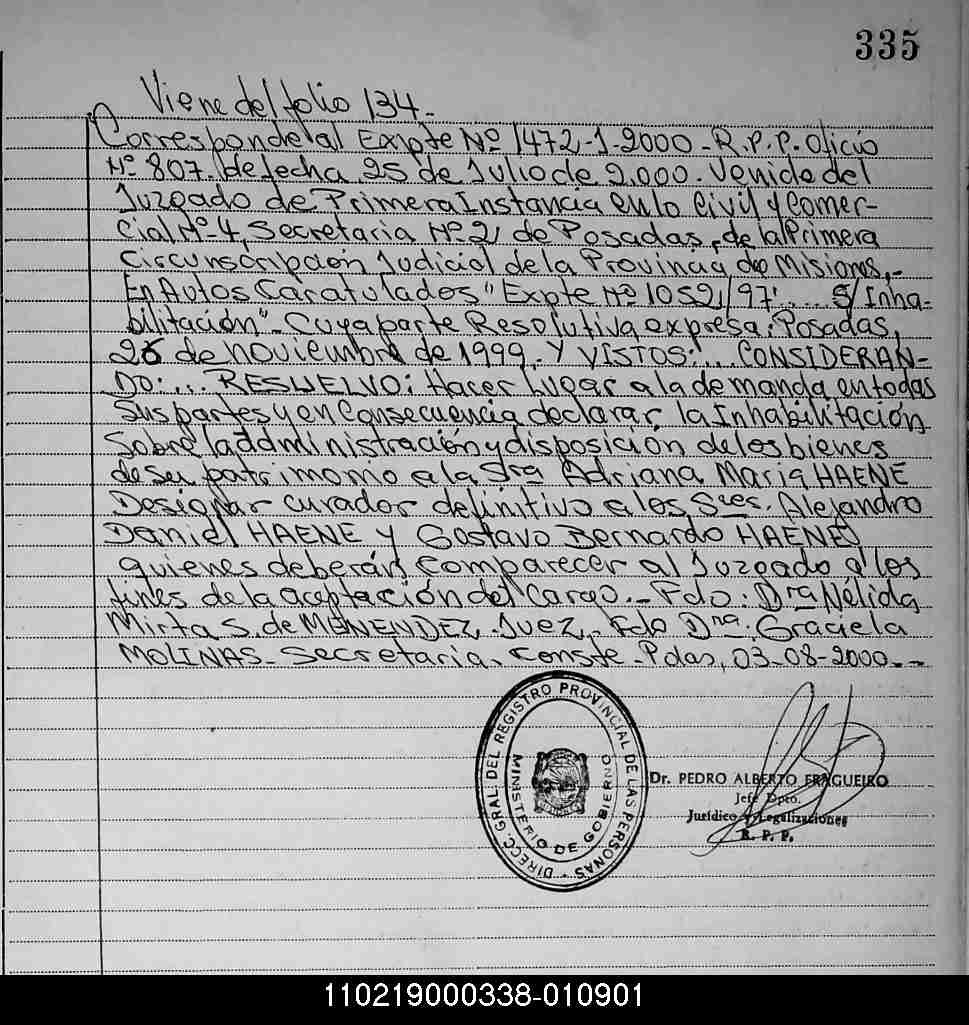 335
Viene del folio 134.-
Corresponde al Expte Nº 1472-1-2000-R.P.P. Oficio
Nº 807. de fecha 25 de Julio de 2.000. Venido del
Juzgado de Primera Instancia en lo Civil y Comer-
cial Nº 4, Secretaria Nº 2, de Posadas, de la Primera
Circunscripción Judicial de la Provincia de Misiones,-
En Autos Caratulados "Expte Nº 1052/97 .... S/Inha-
bilitación"- Cuya parte Resolutiva expresa: Posadas,
26 de noviembre de 1999. Y VISTOS:... CONSIDERAN-
DO:... RESUELVO: Hacer lugar a la demanda en todas
Sus partes y en Consecuencia declarar la Inhabilitación
Sobre la administración y disposición de los bienes
de su patrimonio a la Sra Adriana Maria HAENE
Designar curador definitivo a los Sres. Alejandro
Daniel HAENE y Gustavo Bernardo HAENE,
quienes deberán comparecer al Juzgado a los
fines de la aceptación del Cargo.- Fdo: Dra Nélida
Mirta S. de MENENDEZ. Juez.- Fdo Dra. Graciela
MOLINAS- Secretaria. Conste.- Pdas, 03-08-2000.--
DIRECC. GRAL. DEL REGISTRO PROVINCIAL DE LAS PERSONAS -
MINISTERIO DE GOBIERNO
Dr. PEDRO ALBERTO FRAGUEIRO
Jefe Dpto.
Jurídico y Legalizaciones
R. P. P.
110219000338-010901